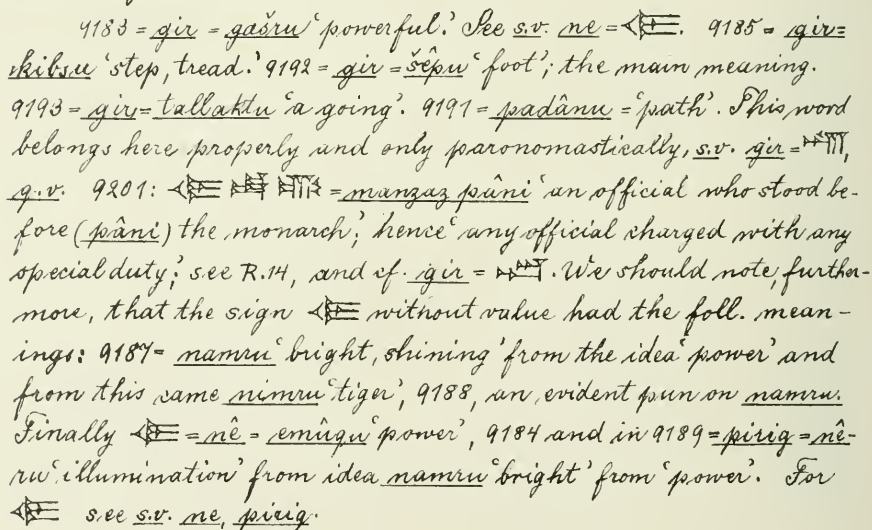 9183 = gir = gašru ‘powerful.’ See s.v. ne = 𒄊. 9185 = gir =
kibsu ‘step, tread.’ 9192 = gir = šêpu ‘foot’; the main meaning.
9193 = gir = tallaktu ‘a going’. 9191 = padânu = ‘path’. This word
belongs here properly and only paronomastically, s.v. gir =
q.v. 9201: 𒄊 = manzaz pâni ‘an official who stood be-
fore (pâni) the monarch’; hence ‘any official charged with any
special duty’; see R.14, and cf. gir = . We should note, further-
more, that the sign 𒄊 without value had the foll. mean-
ings: 9187 = namru ‘bright, shining’ from the idea ‘power’ and
from this came nimru ‘tiger’, 9188, an evident pun on namru.
Finally 𒄊 = nê = emûqu ‘power’, 9184 and in 9189 = pirig = nê-
ru ‘illumination’ from idea namru ‘bright’ from ‘power’. For
𒄊 see s.v. ne, pirig.